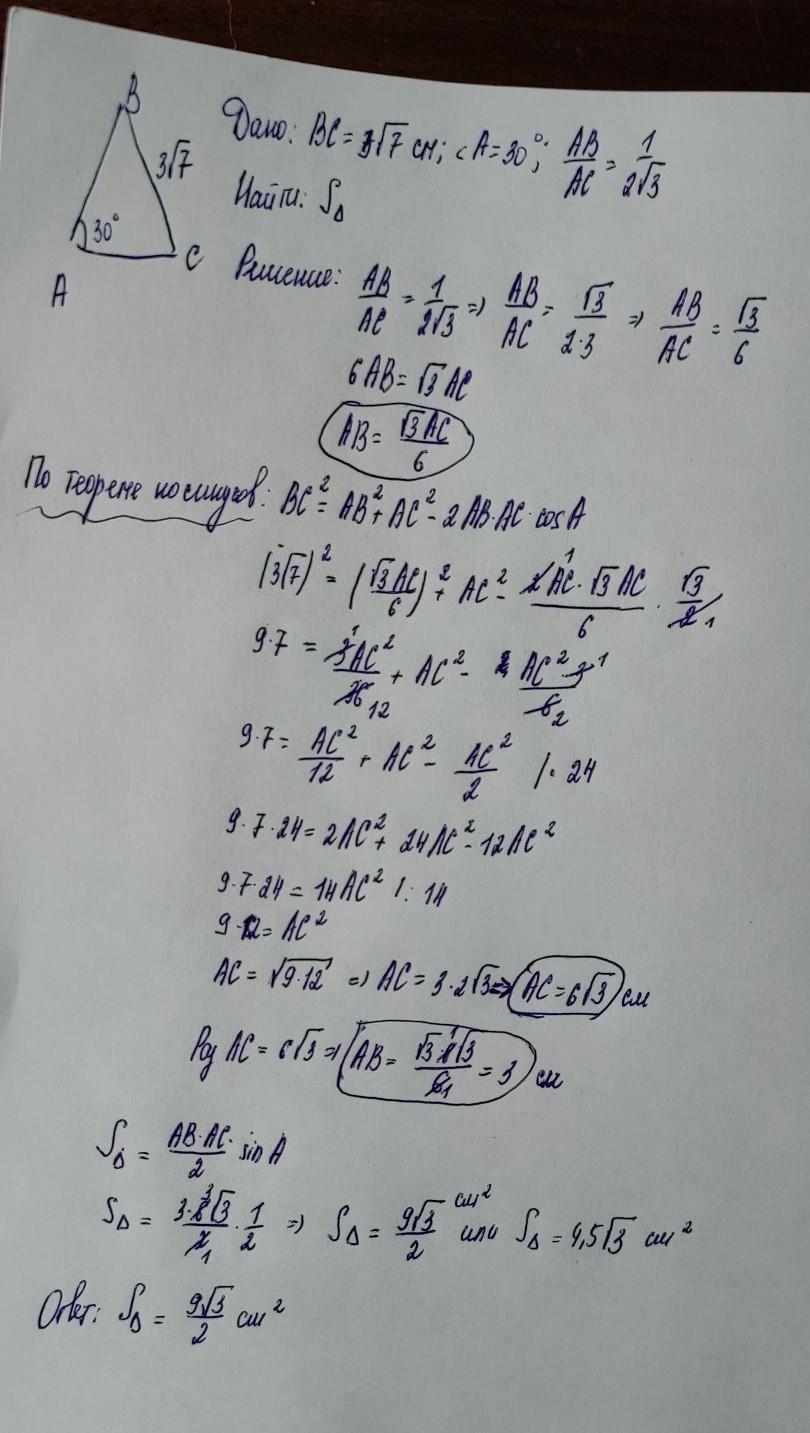 B
3√7
30°
A
C
Дано: BC = 3√7 см; ∠A = 30°; AB/AC = 1/2√3
Найти: S△
Решение: AB/AC = 1/2√3 => AB/AC = √3/2·3 => AB/AC = √3/6
6AB = √3 AC
AB = √3 AC/6
По теореме косинусов: BC² = AB² + AC² - 2AB·AC·cosA
(3√7)² = (√3AC/6)² + AC² - 2AC·√3AC/6 · √3/2
9·7 = 3AC²/36 + AC² - AC²·3/6
9·7 = AC²/12 + AC² - AC²/2 /·24
9·7·24 = 2AC² + 24AC² - 12AC²
9·7·24 = 14AC² /:14
9·12 = AC²
AC = √9·12 => AC = 3·2√3 => AC = 6√3 см
AC = 6√3 => AB = √3·6√3/6 = 3 см
S△ = AB·AC/2 · sin A
S△ = 3·6√3/2 · 1/2 => S△ = 9√3/2 см² или S△ = 4,5√3 см²
Ответ: S△ = 9√3/2 см²